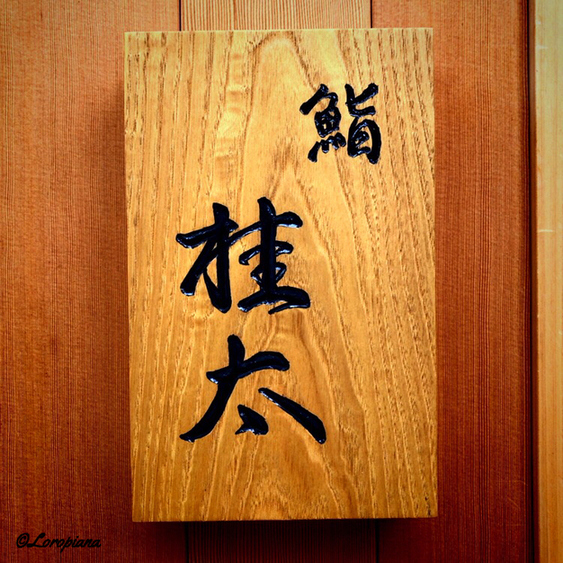 鮨
桂太
©Loropiana